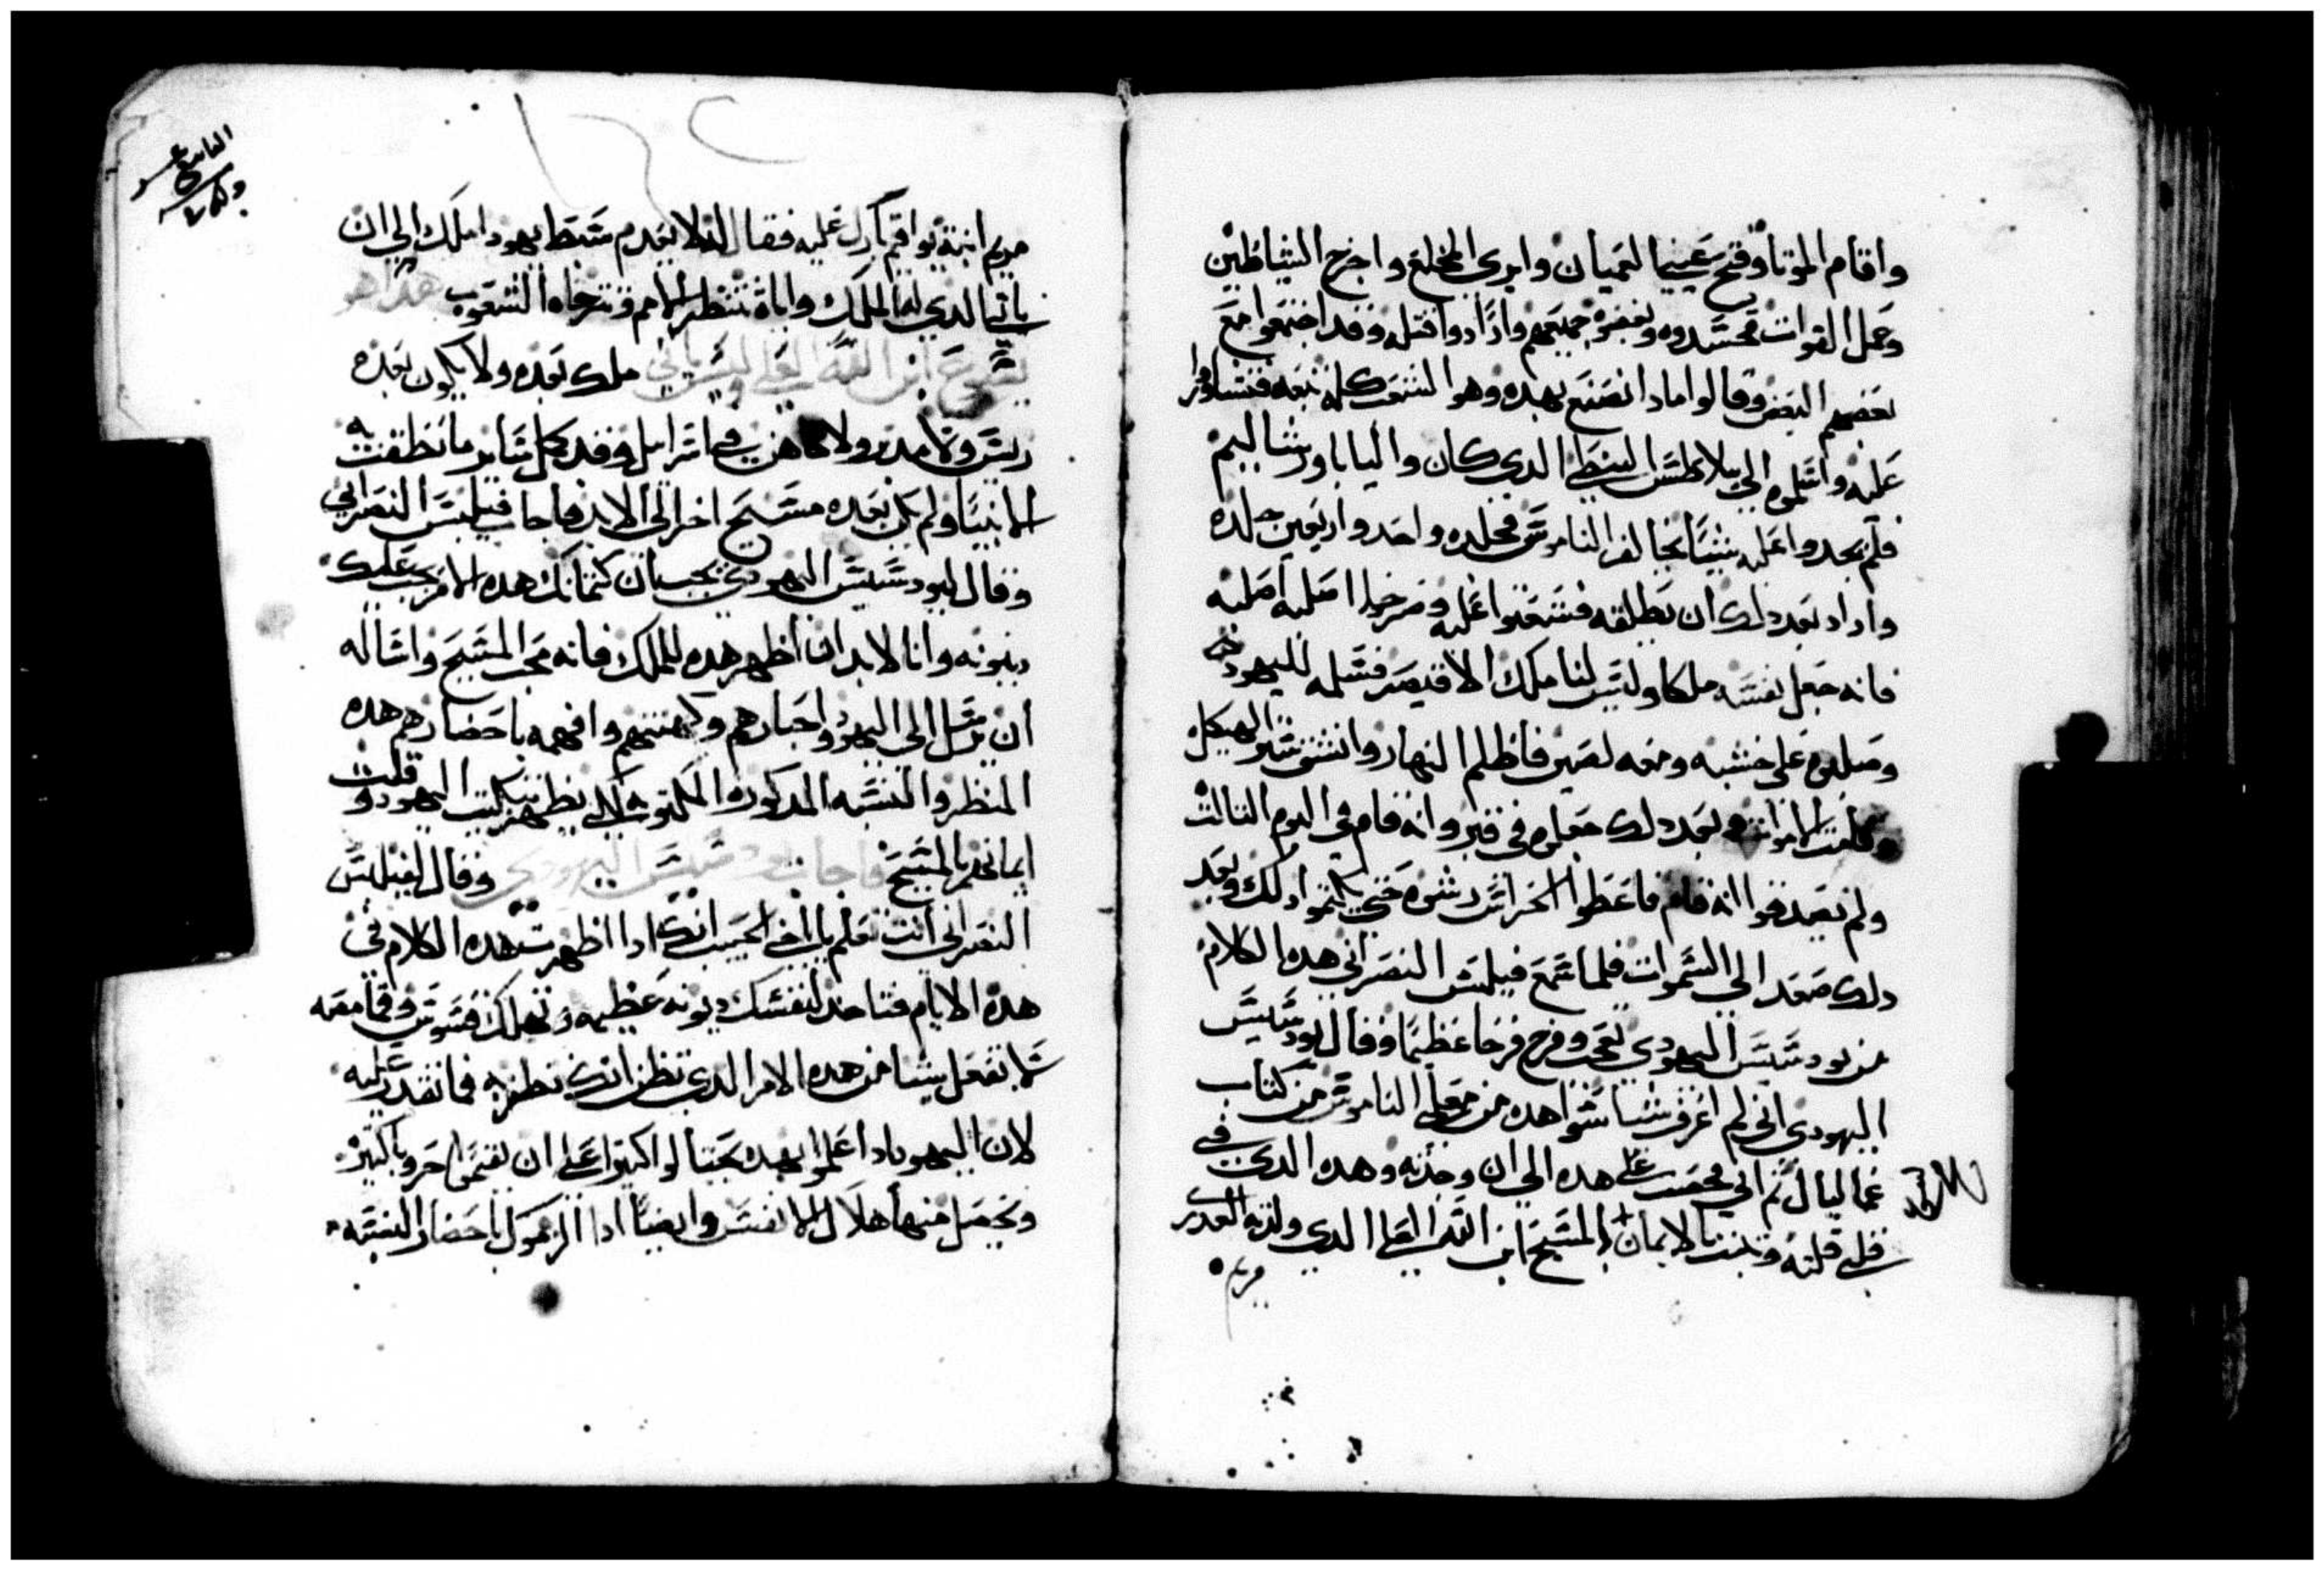 واقام الموتا وفتح عينيا لعميان وابري المخلع واخرج الشياطين
وعمل القوات فحسدوه وبغضوه جميعهم وارادوا قتله وقد اجتمعوا مع
بعضهم البعض وقالوا مادا نصنع بهده وهو الشعب كله تبعه فتشاوروا
عليه واسلموه الي بيلاطس البنطي الدي كان واليا باورشاليم
فلم يجدوا عليه شيئا يخالف الناموس فجلده واحد واربعين جلده
واراد بعد دلك ان يطلقه فشغبوا عليه وصرخوا اصلبه اصلبه
فانه جعل نفسه ملكا وليس لنا ملك الا قيصر فسلمه لليهود
وصلبوه علي خشبه ومعه لصين فاظلم النهار وانشق ستر الهيكل
وقامت الاموات وبعد دلك جعلوه في قبر وانه قام في اليوم التالت
ولم يصدقوا انه قام فاعطوا الحراس رشوه حتي يكتموا دلك وبعد
دلك صعد الي السموات فلما سمع فيلبس النصراني هده الكلام
من يودسيس اليهودي تعجب وفرح فرحا عظيما وقال يودسيس
اليهودي اني لم اعرف شيئا شواهده من معلمي الناموس من كتاب
غماليال ثم اني فحصت علي هده الي ان وجدته وهده الدي في
قلبي قلته وتبنت بالايمان بالمسيح ابن الله العلي الدي ولدته العدري
مريم
التاسع عشر
مريم ابنة يواقيم بارك عليه فقال انه لا يعدم سبط يهودا ملك الي ان
ياتي الدي له الملك واياه تنتظر الامم وتترجاه الشعوب هدا هو
يسوع ابن الله العلي وليس ياتي ملك بعده ولا يكون بعده
ريس ولا مدبر ولا كاهن في اسراييل وقد كمل ساير ما نطقت به
الانبيا ولم يكن بعده مسيح اخر الي الابد فاجاب فيلبس النصراني
وقال ليودسيس اليهودي يجب ان كتمانك هده الامر يجب عليك
دينونه وانا لابد ان اظهر هده للملك فانه محب المسيح واساله
ان يرسل الي اليهود واحبارهم وكهنتهم وافهمه باحضارهم هده
المنظر والنسبه المدكوره المكتوبه لكي يظهر تبكيت اليهود وقلت
ايمانهم بالمسيح فاجاب يودسيس اليهودي وقال لفيلبس
النصراني انت تعلم يا اخي الحبيب انك ادا اظهرت هده الكلام في
هده الايام فتاخد لنفسك دينونه عظيمه وتهلك نفسك
لا تفعل شيئا من هده الامر الدي تظن انك تظفر به فما تقدر عليه
لان اليهود ادا علموا بهده يحتالوا كثيرا علي ان يقيموا حروبا كتيره
وتحصل منها هلاك الانفس وايضا ادا الزموك باحضار النسبه